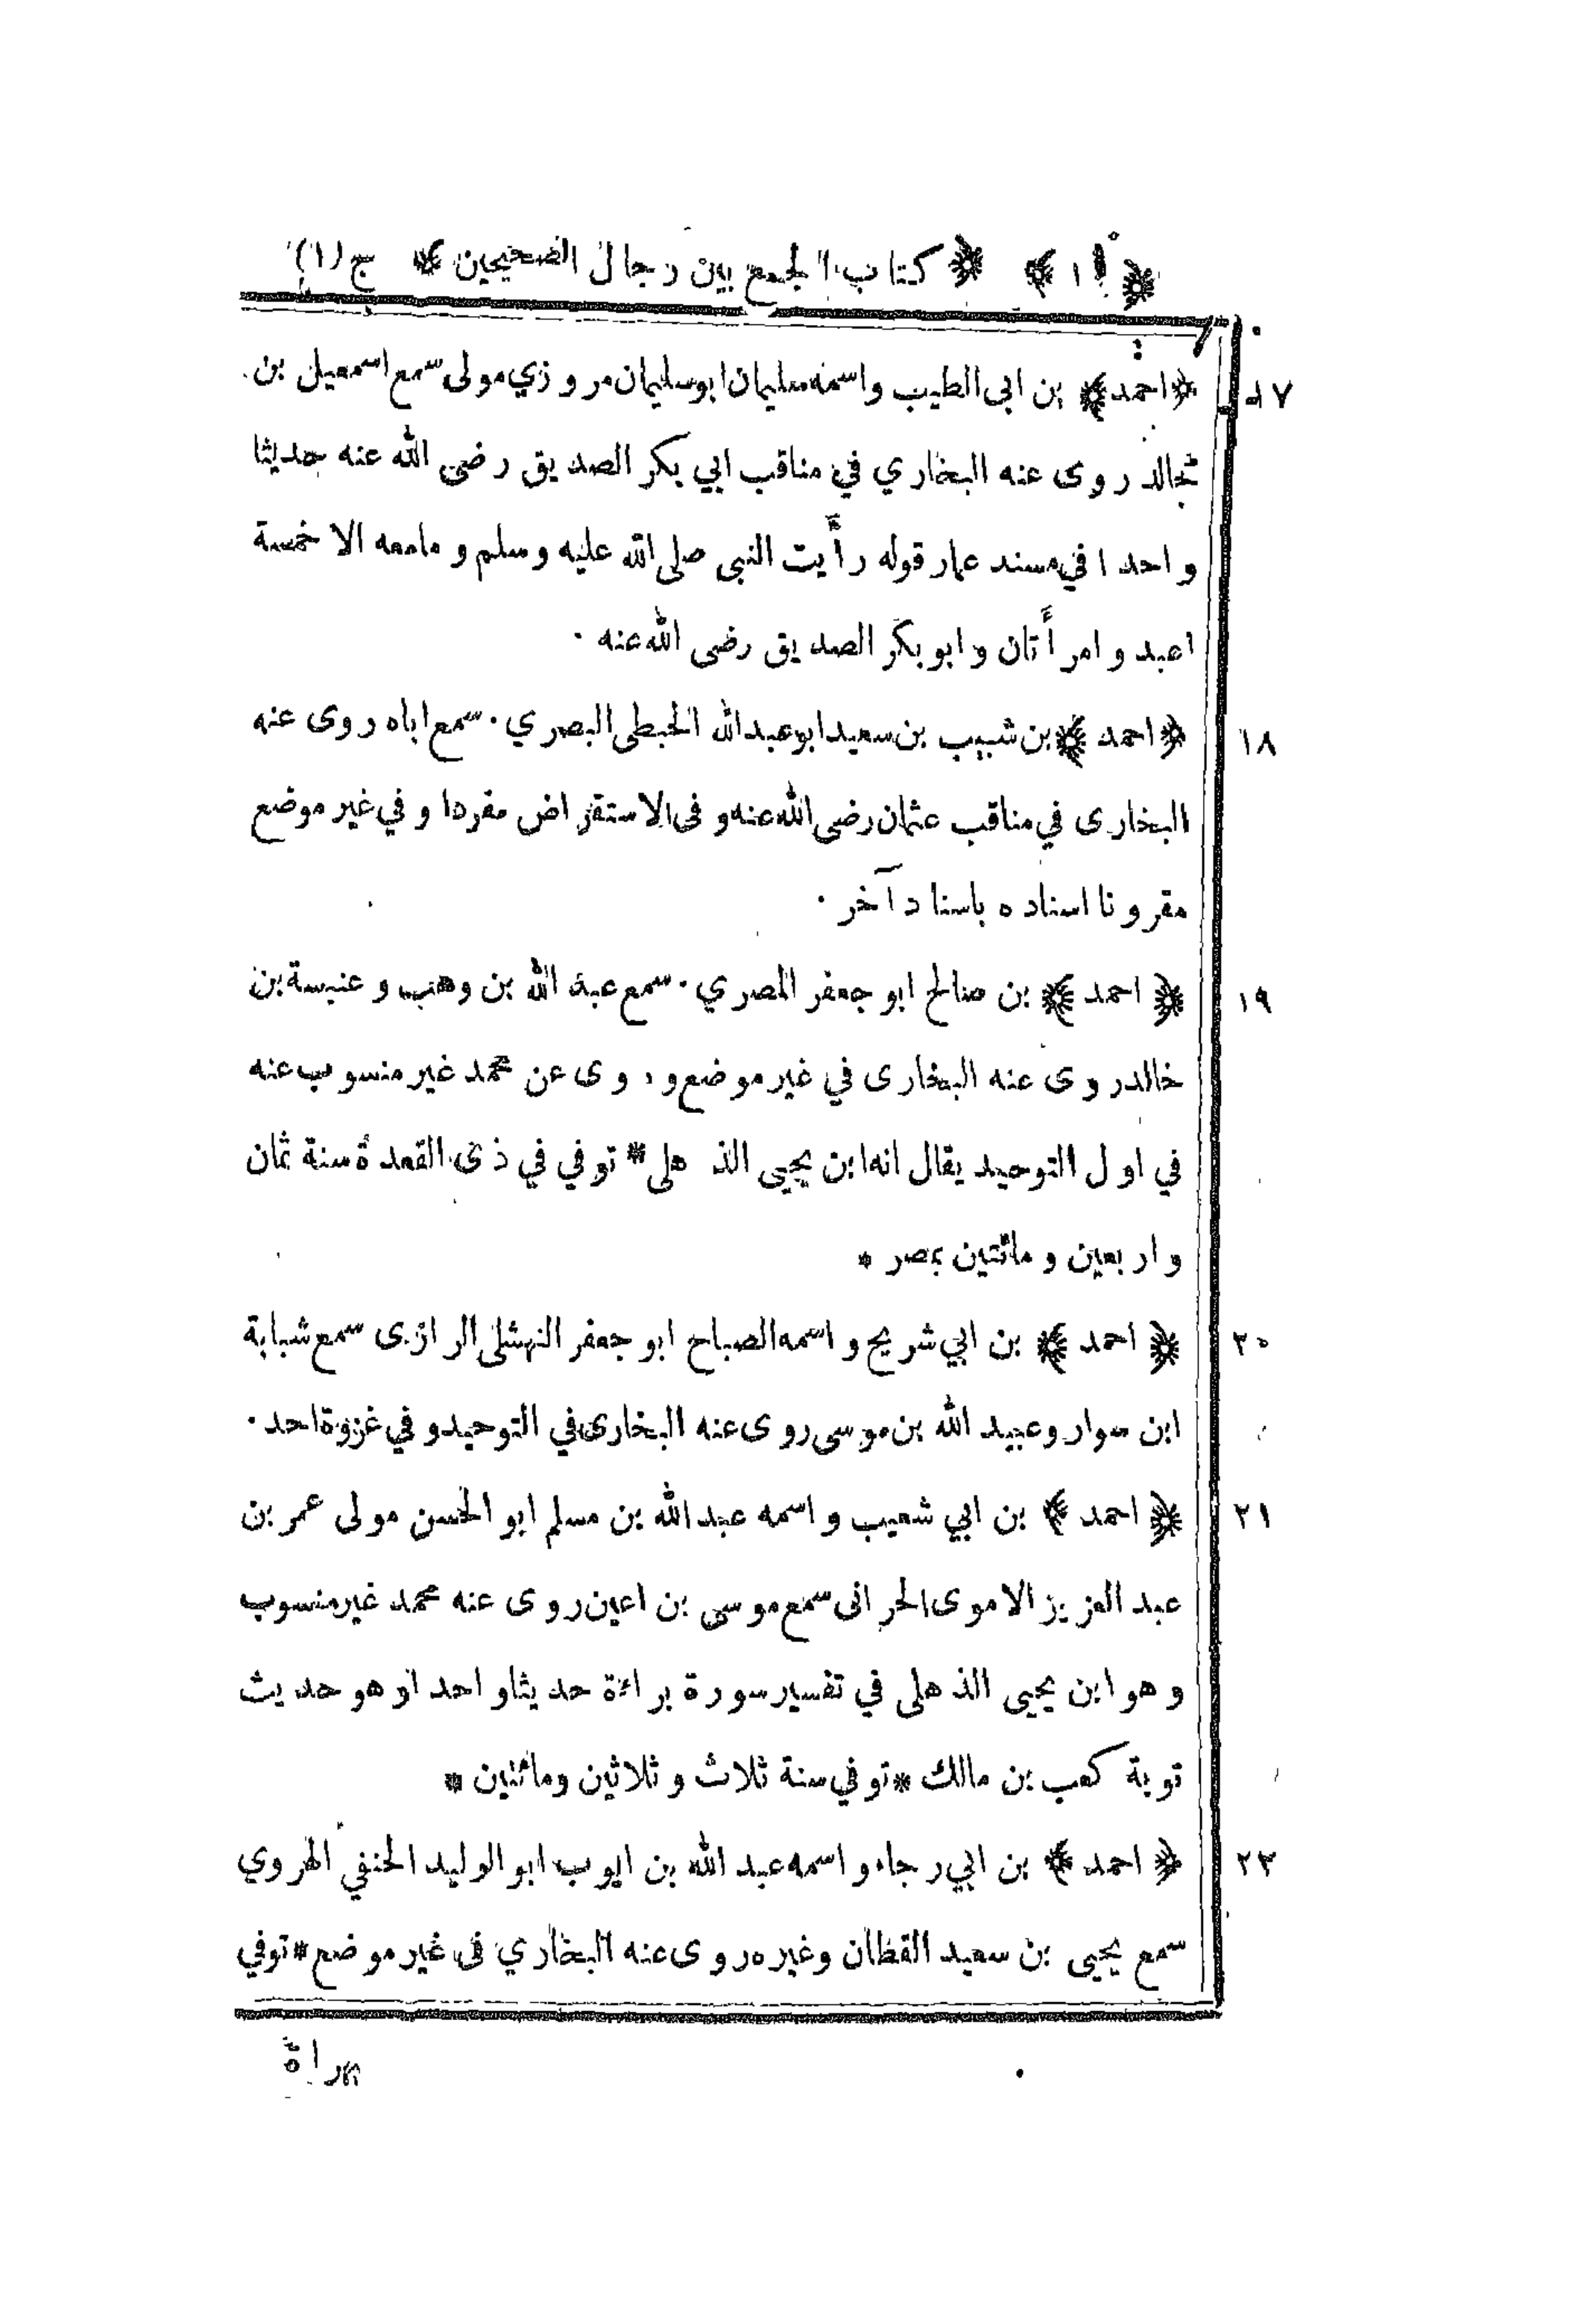 ﴿١٠﴾ ﴿كتاب الجمع بين رجال الصحيحين﴾ ج (١)
١٧ ﴿احمد﴾ بن ابى الطيب واسمه سليمان ابو سليمان مروزي مولى سمع اسمعيل بن
مجالد روى عنه البخاري في مناقب ابي بكر الصديق رضى الله عنه حديثا
واحدا في مسند عمار قوله رأيت النبى صلى الله عليه وسلم وما معه الا خمسة
اعبد وامرأتان وابو بكر الصديق رضى الله عنه ٠
١٨ ﴿احمد﴾ بن شبيب بن سعيد ابو عبد الله الحبطى البصري ٠ سمع اباه روى عنه
البخارى في مناقب عثمان رضى الله عنه و فى الاستقراض مفردا و في غير موضع
مقرونا اسناده باسناد آخر ٠
١٩ ﴿احمد﴾ بن صالح ابو جعفر المصري ٠ سمع عبد الله بن وهب و عنبسة بن
خالد روى عنه البخارى في غير موضع و روى عن محمد غير منسوب عنه
في اول التوحيد يقال انه ابن يحيى الذهلى * توفي في ذى القعدة سنة ثمان
واربعين ومائتين بمصر *
٢٠ ﴿احمد﴾ بن ابي شريح واسمه الصباح ابو جعفر النهشلى الرازى سمع شبابة
ابن سوار وعبيد الله بن موسى روى عنه البخارى في التوحيد و في غزوة احد ٠
٢١ ﴿احمد﴾ بن ابي شعيب واسمه عبد الله بن مسلم ابو الحسن مولى عمر بن
عبد العزيز الاموى الحرانى سمع موسى بن اعين روى عنه محمد غير منسوب
وهو ابن يحيى الذهلى في تفسير سورة براءة حديثا واحدا وهو حديث
توبة كعب بن مالك * توفي سنة ثلاث وثلاثين ومائتين *
٢٢ ﴿احمد﴾ بن ابي رجاء واسمه عبد الله بن ايوب ابو الوليد الحنفي الهروي
سمع يحيى بن سعيد القطان وغيره روى عنه البخاري فى غير موضع * توفي
بهراة